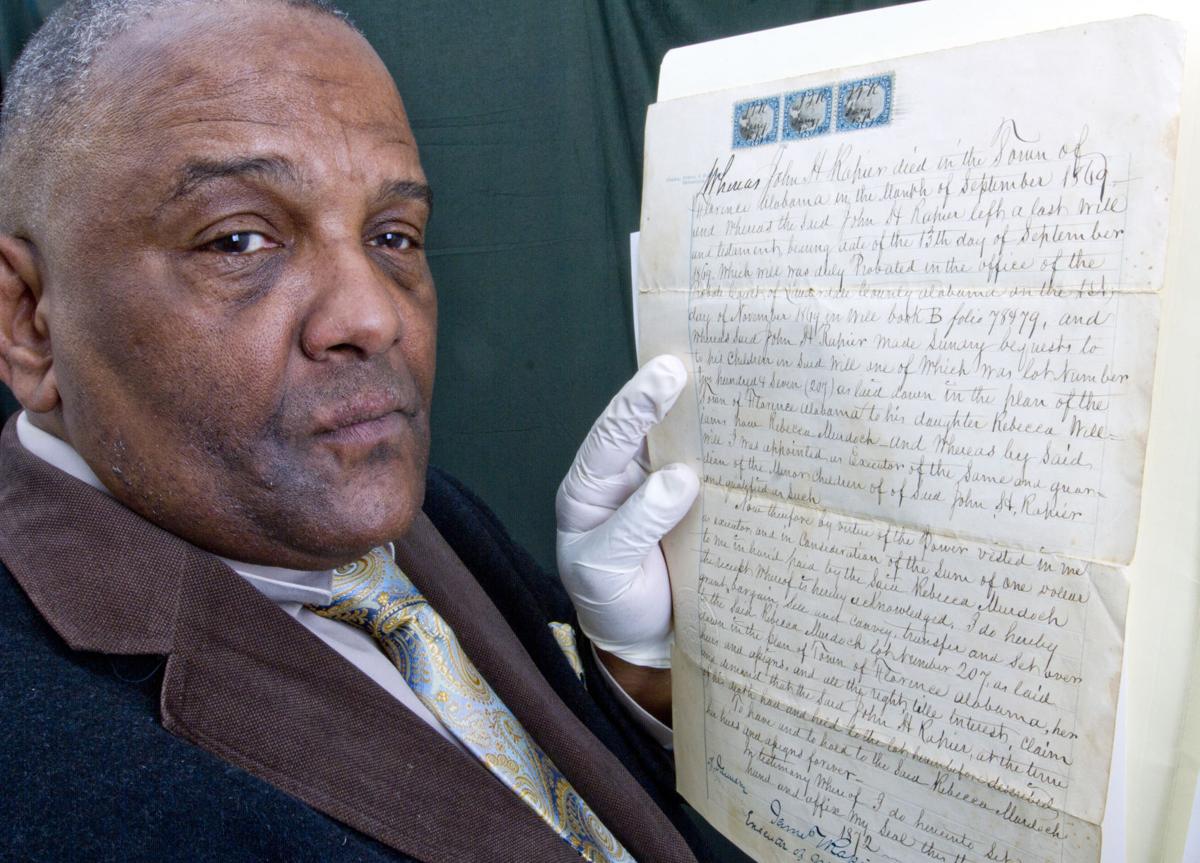 Whereas John H Rapier died in the Town of
Florence Alabama in the Month of September 1869
and Whereas the Said John H Rapier left a last Will
and testament, bearing date of the 13th day of September
1869, Which will was duly Probated in the office of the
Probate Court of Lauderdale County Alabama on the 1st
day of November 1869 in Will book B folio 78&79, and
Whereas Said John H Rapier made Sundry bequests to
to his Children in Said Will one of Which was lot Number
two hundred & Seven (207) as laid down in the plan of the
Town of Florence Alabama to his daughter Rebecca Will=
iams now Rebecca Murdoch and Whereas by Said
Will I was appointed as Executor of the Same and guar-
dian of the Minor Children of of Said John H. Rapier
and qualified as Such
Now therefore by virtue of the Power vested in me
as executor, and in Consideration of the Sum of One Dollar
to me in hand paid by the Said Rebecca Murdoch
the receipt Whereof is hereby acknowledged, I do hereby
grant, bargain, Sell and convey, transfer and Set over
to the Said Rebecca Murdoch lot Number 207, as laid
down in the Plan of Town of Florence Alabama, her
heirs and assigns, and all the right, title Interest, Claim
and demand that the Said John H Rapier, at the time
of his death had and held to the lot herein before described
To have and to hold to the Said Rebecca Murdoch
her heirs and assigns forever
In testimony Whereof I do hereunto Set
hand and affix My Seal this
of January 1872
James
Executor of